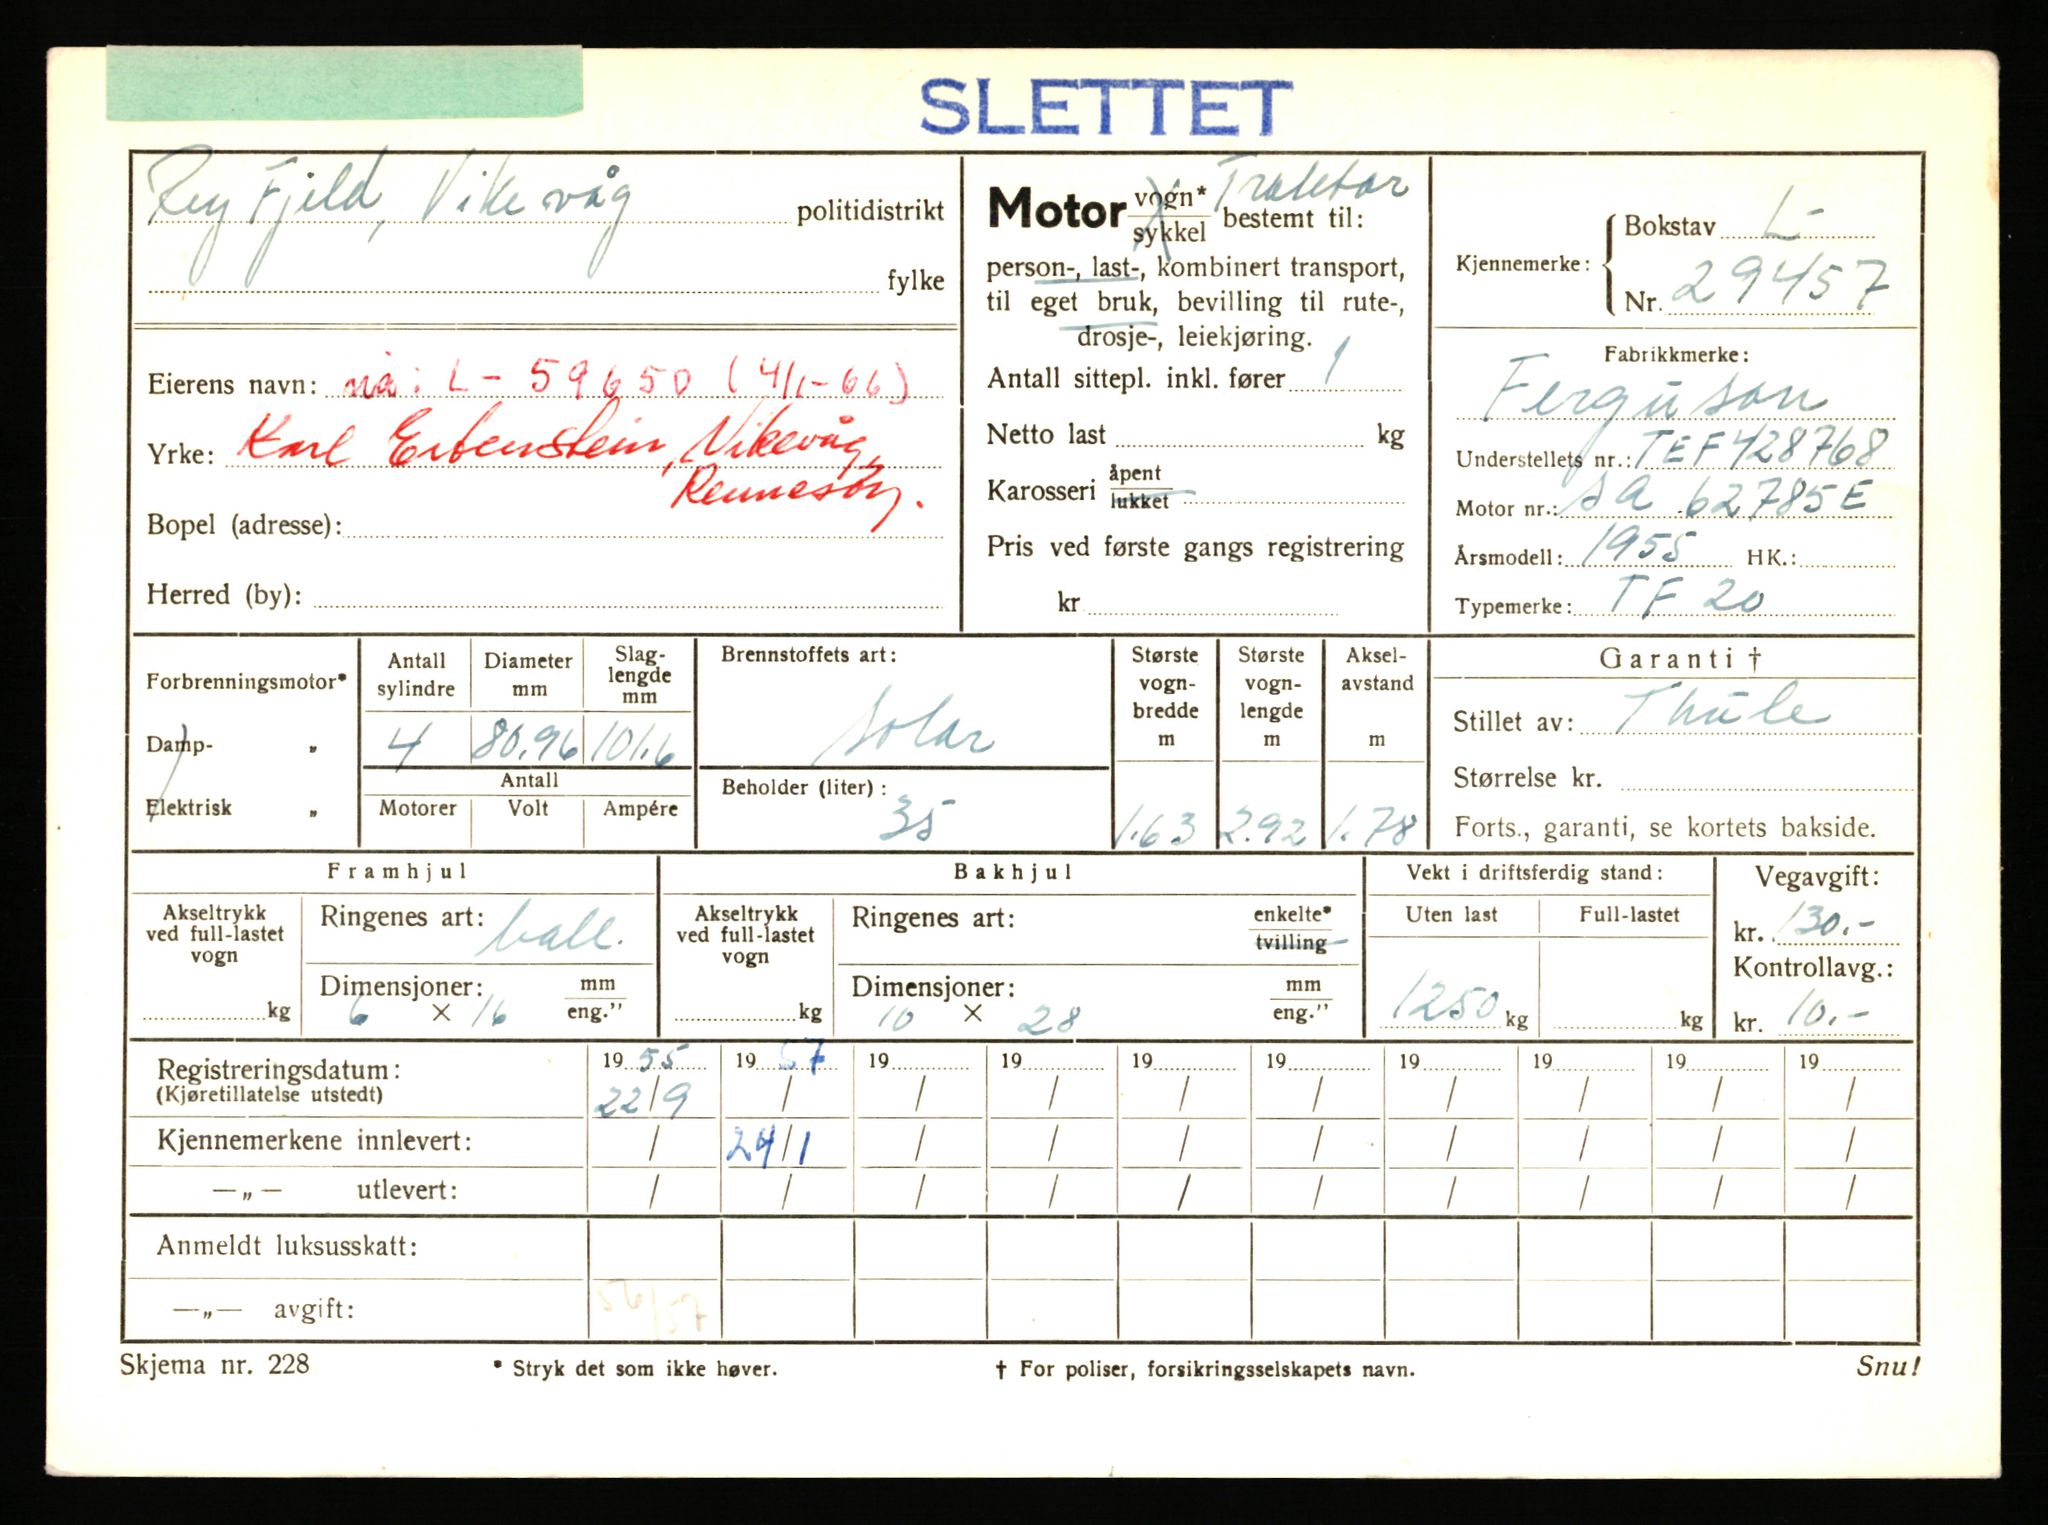 SLETTET
Rey Fjeld, Vikevåg politidistrikt
fylke
Eierens navn: nå: L - 59650 (4/1-66)
Yrke: Karl Erbenstein, Vikevåg,
Rennesøy.
Bopel (adresse):
Herred (by):
Motor vogn* Traktor
sykkel bestemt til:
person-, last-, kombinert transport,
til eget bruk, bevilling til rute-,
drosje-, leiekjøring.
Antall sittepl. inkl. fører 1
Netto last kg
Karosseri åpent
lukket
Pris ved første gangs registrering
kr
Kjennemerke: Bokstav L-
Nr. 29457
Fabrikkmerke:
Ferguson
Understellets nr.: TEF428768
Motor nr.: SA 62785E
Årsmodell: 1955 HK.:
Typemerke: TF 20
Forbrenningsmotor*
Damp- „
Elektrisk „
Antall sylindre Diameter mm Slaglengde mm
4 80,96 101.6
Antall
Motorer Volt Ampére
Brennstoffets art:
solar
Beholder (liter):
35
Største vognbredde m
1.63
Største vognlengde m
2.92
Akselavstand m
1.78
Garanti †
Stillet av: Thule
Størrelse kr.
Forts., garanti, se kortets bakside.
Framhjul
Akseltrykk ved full-lastet vogn
kg
Ringenes art: ball.
Dimensjoner: mm
6 × 16 eng."
Bakhjul
Akseltrykk ved full-lastet vogn
kg
Ringenes art: enkelte*
tvilling
Dimensjoner: mm
10 × 28 eng."
Vekt i driftsferdig stand:
Uten last Full-lastet
1250 kg kg
Vegavgift:
kr. 130.-
Kontrollavg.:
kr. 10.-
Registreringsdatum: 19 55 19 57 19 19 19 19 19 19 19 19
(Kjøretillatelse utstedt) 22/9 / / / / / / / / /
Kjennemerkene innlevert: / 24/1 / / / / / / / /
—„— utlevert: / / / / / / / / / /
Anmeldt luksusskatt:
—„— avgift: 56/57
Skjema nr. 228 * Stryk det som ikke høver. † For poliser, forsikringsselskapets navn. Snu!